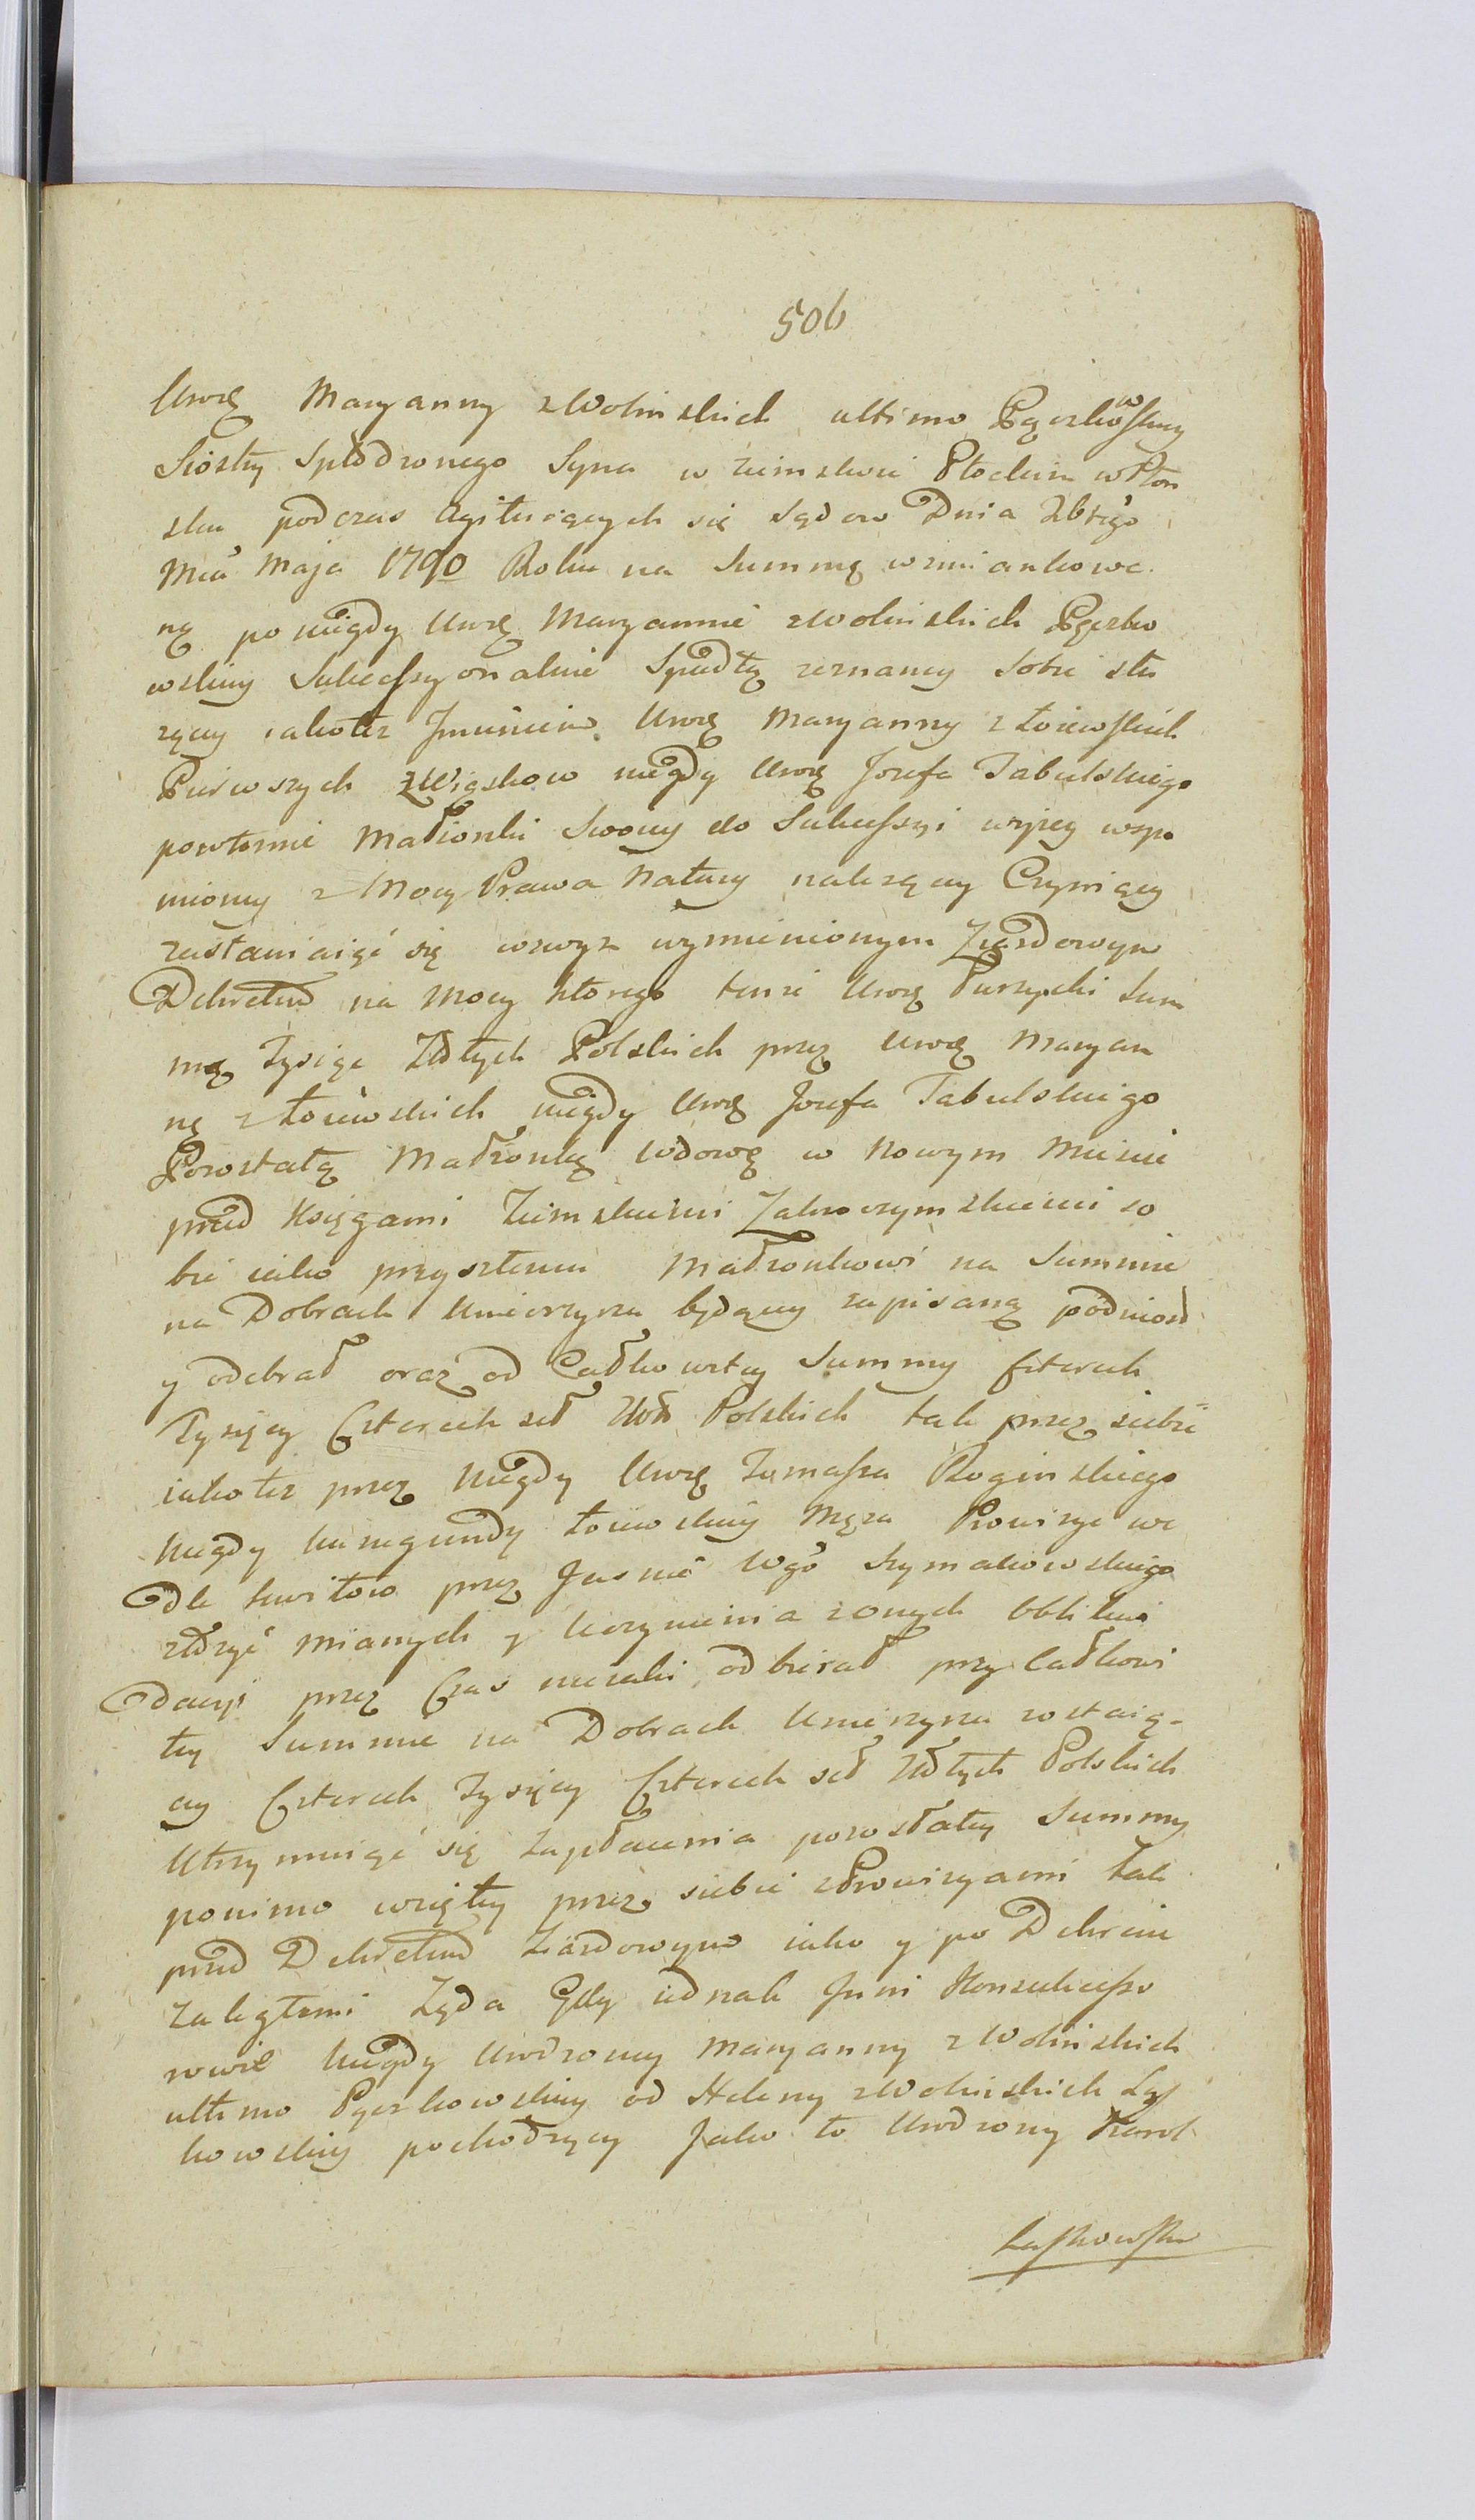 506
Urzę Maryanny z Wolinskich ultimo Pączkowskiey
Siostry Spłodzonego Syna w Ziemstwie Płockim w Płon
sku podczas Agituiących się Sądow Dnia 26tego
Mca Maja 1790 Roku na Summę wzmiankowa
ną po niegdy Urzę Maryannie z Wolinskich Pączko
wskiey Sukcessyonalnie Spadłą zeznaney Sobie słu
żący iakotez Jmieniem Urzę Maryanny z Łoiewskich
Pierwszych Związkow niegdy Urzę Jozefa Tabulskiego
powtornie Małżonki Swoiey do Sukcessyi wyżey wspo
mnioney z Mocy Prawa Natury należącey Czyniący
zastawiaiąć się wzwyz wymienionym Ziazdowym
Dekretem na Mocy ktorego tenze Urzę Purzycki Sum
mę Tysiąc Złłtych Polskich przez Urzę Maryan
nę z Łoiewskich niegdy Urzę Jozefa Tabulskiego
Pozostałą Małżonkę Wdowę w Nowym Miescie
przed Księgami Ziemskiemi Zakroczymskiemi so
bie iako przyszłemu Małżonkowi na Summie
na Dobrach Unierzyza będącey zapisaną podniosł
y odebrał oraz od Całkowitey Summy Czterech
Tysięcy Czterech set Złłt Polskich tak przez siebie
iakotez przez Niegdy Urzę Tomasza Roginskiego
Niegdy Kunegundy Łoiewskiey Męza Prowizye we
dle kwitow przez Jasnie Wgo Szymakowskiego
złożyć mianych y Uczynienia z onych Obliki
dacyi przez Czas nieiaki odbierał przy Całkowi
tey Summie na Dobrach Unierzyza zostaią-
cy Czterech Tysięcy Czterech set Złłtych Polskich
Utrzymuiąć się Zapłacenia pozostałey Summy
pomimo wziętey przez siebie z Prowizyami tak
przed Dekretem Ziazdowym iako y po Dekrecie
zaległemi Ząda Gdy iednak Jnni Konsukcesso
rowie Niegdy Urodzoney Maryanny z Wolinskich
ultimo Pączkowskiey od Heleny z Wolinskich
kowskiey pochodzący Jako to Urodzony Karol